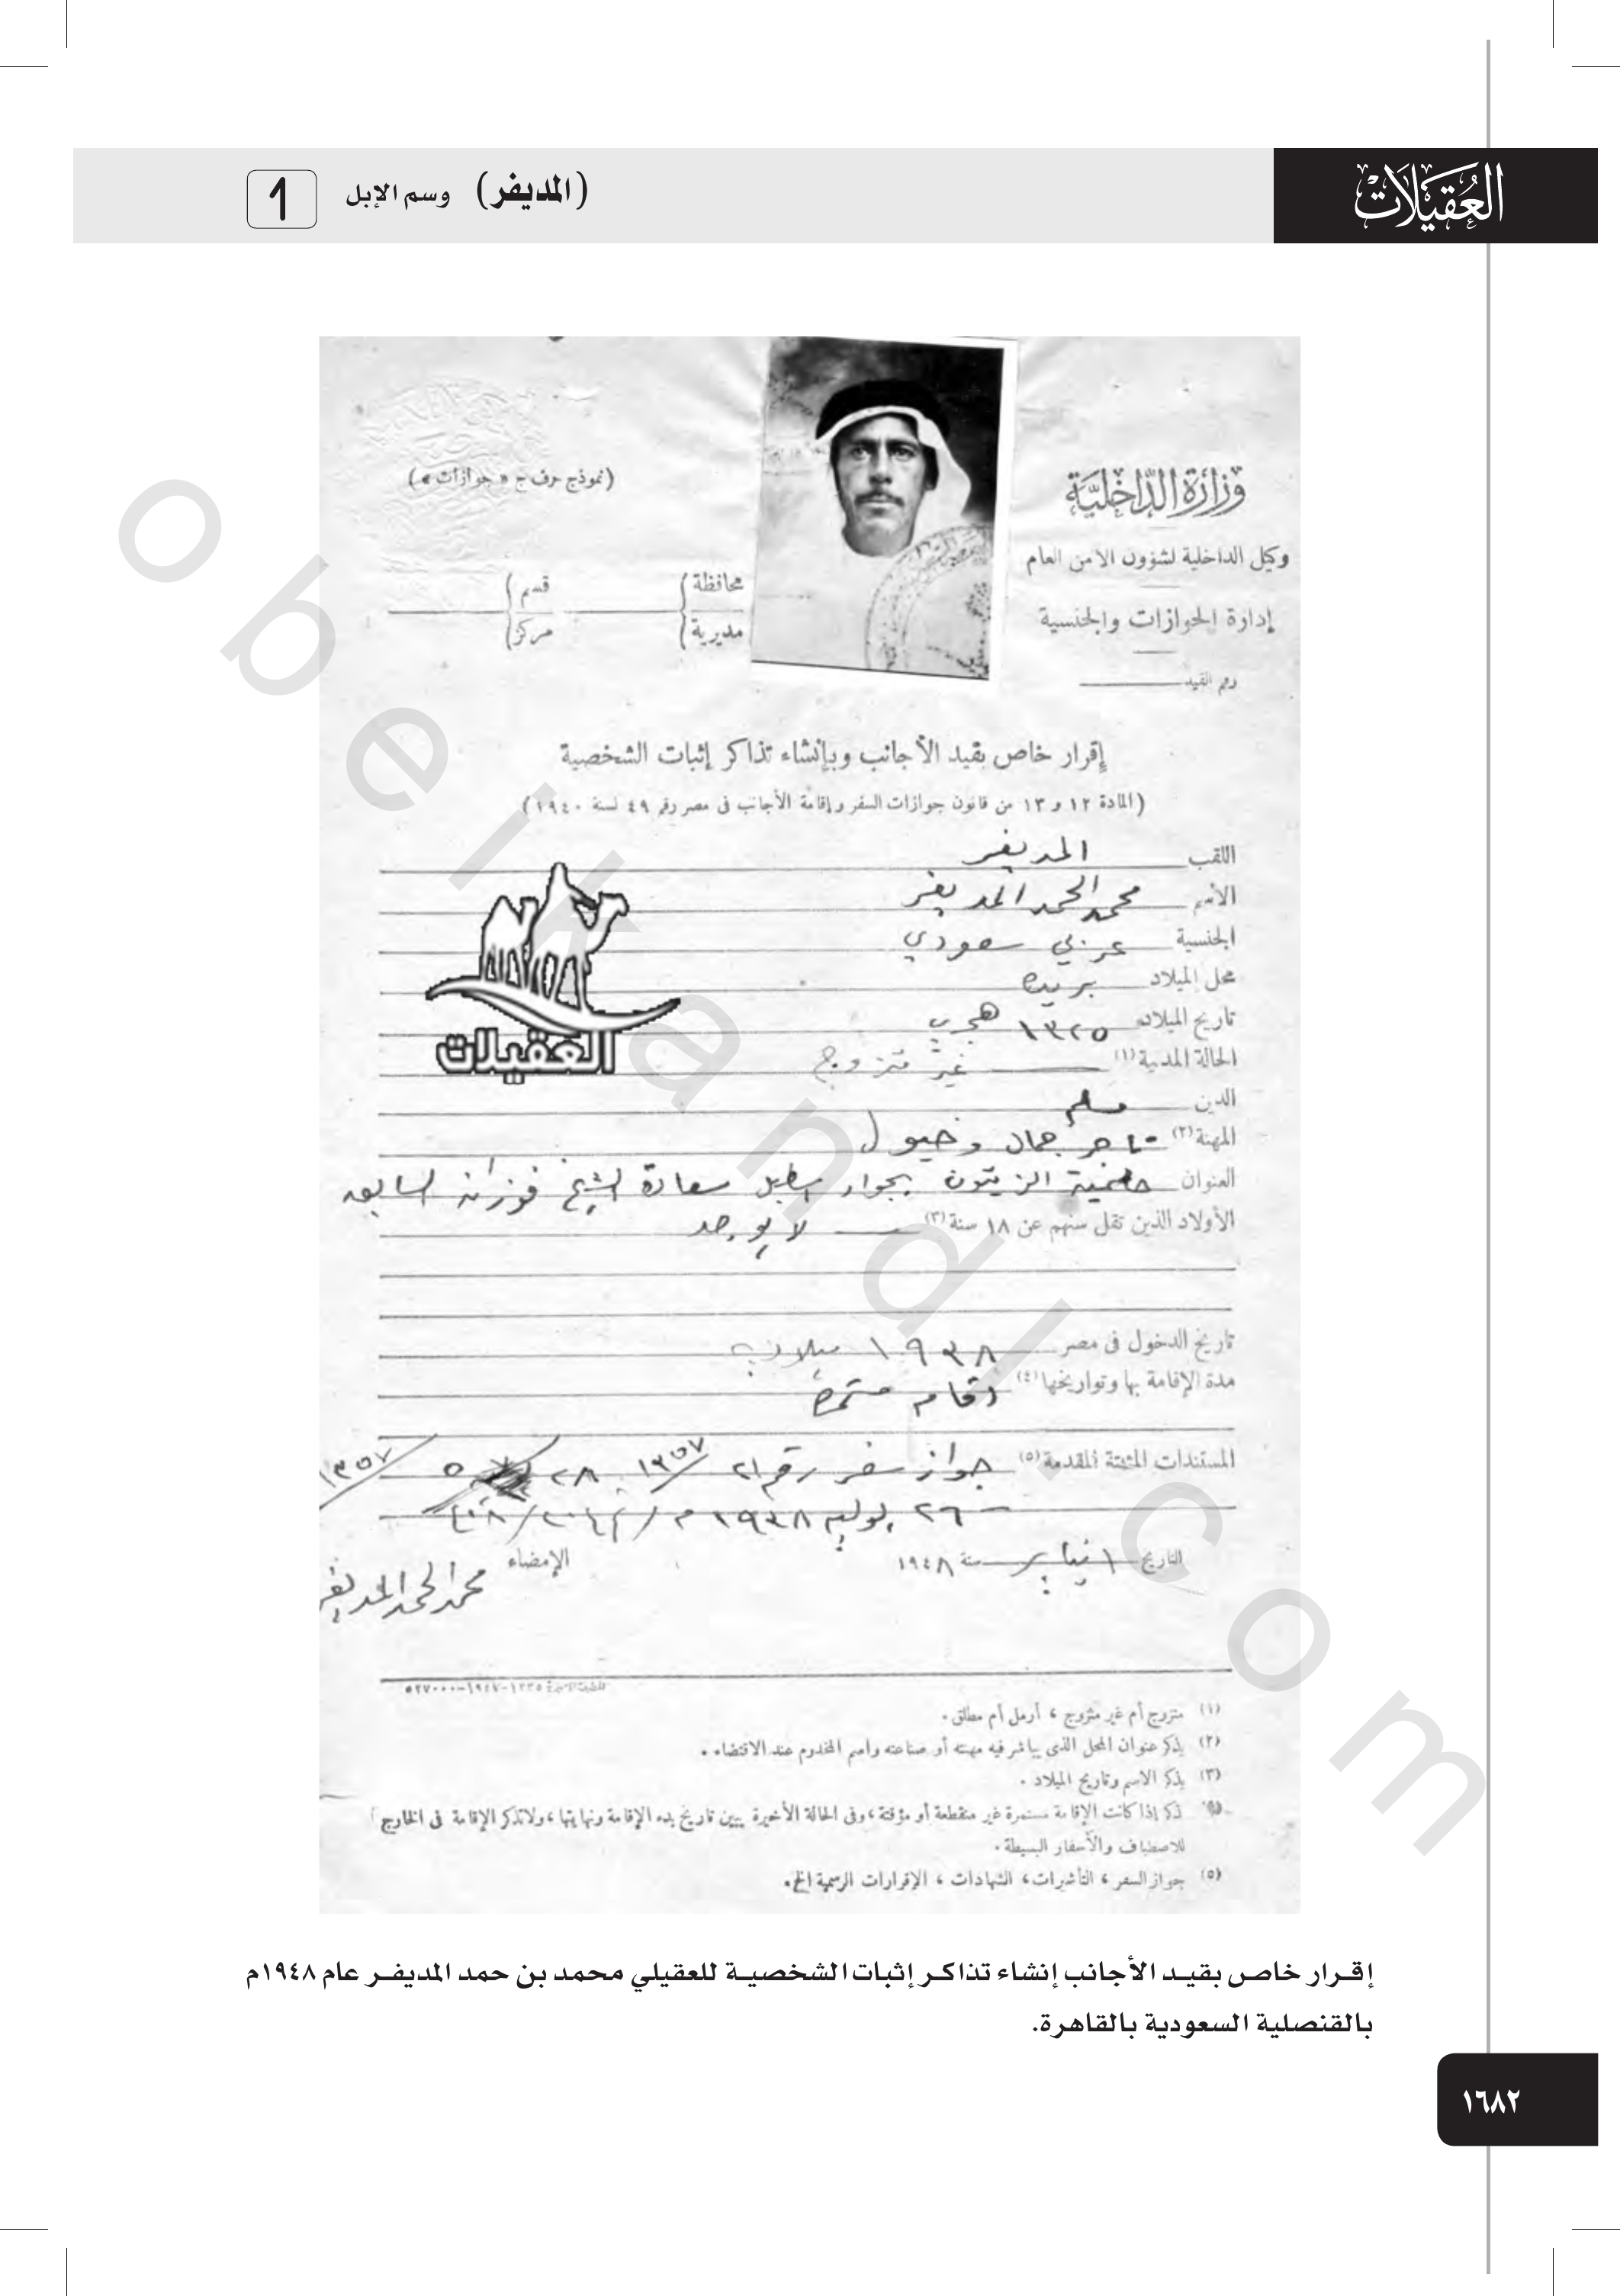 العُقَيْلَاتْ
(المديفر) وسم الإبل 1
(نموذج حرف ج « جوازات »)
وزارة الداخلية
وكيل الداخلية لشؤون الأمن العام
إدارة الجوازات والجنسية
رقم القيد
محافظة
مديرية
قسم
مركز
إقرار خاص بقيد الأجانب وبإنشاء تذاكر إثبات الشخصية
(المادة ١٢ و ١٣ من قانون جوازات السفر وإقامة الأجانب فى مصر رقم ٤٩ لسنة ١٩٤٠)
اللقب المديفر
الاسم محمد الحمد المديفر
الجنسية عربي سعودي
محل الميلاد بريده
تاريخ الميلاد ١٣٢٥ هجري
الحالة المدنية (١) غير متزوج
الدين مسلم
المهنة (٢) تاجر جمال وخيول
العنوان حلمية الزيتون بجوار اسطبل سعادة الشيخ فوزان السابق
الأولاد الذين تقل سنهم عن ١٨ سنة (٣) لا يوجد
تاريخ الدخول فى مصر ١٩٣٨ ميلاديه
مدة الإقامة بها وتواريخها (٤)
المستندات المثبتة المقدمة (٥) جواز سفر رقم ٢١ ١٣٥٧ ٢٨ ٥ ١٣٥٧
٢٦ يوليه ١٩٣٨ م
التاريخ ١ يناير سنة ١٩٤٨ الإمضاء
محمد الحمد المديفر
العقيلات
(١) متزوج أم غير متزوج ، أرمل أم مطلق .
(٢) يذكر عنوان المحل الذى يباشر فيه مهنته أو صناعته واسم المخدوم عند الاقتضاء .
(٣) يذكر الاسم وتاريخ الميلاد .
ذكر إذا كانت الإقامة مستمرة غير منقطعة أو مؤقتة ، وفى الحالة الأخيرة يبين تاريخ بدء الإقامة ونهايتها ، ولا تذكر الإقامة فى الخارج
للاصطياف والأسفار البسيطة .
(٥) جواز السفر ، التأشيرات ، الشهادات ، الإقرارات الرسمية الخ .
إقرار خاص بقيد الأجانب إنشاء تذاكر إثبات الشخصية للعقيلي محمد بن حمد المديفر عام ١٩٤٨م
بالقنصلية السعودية بالقاهرة.
١٦٨٢
obeikandl.com